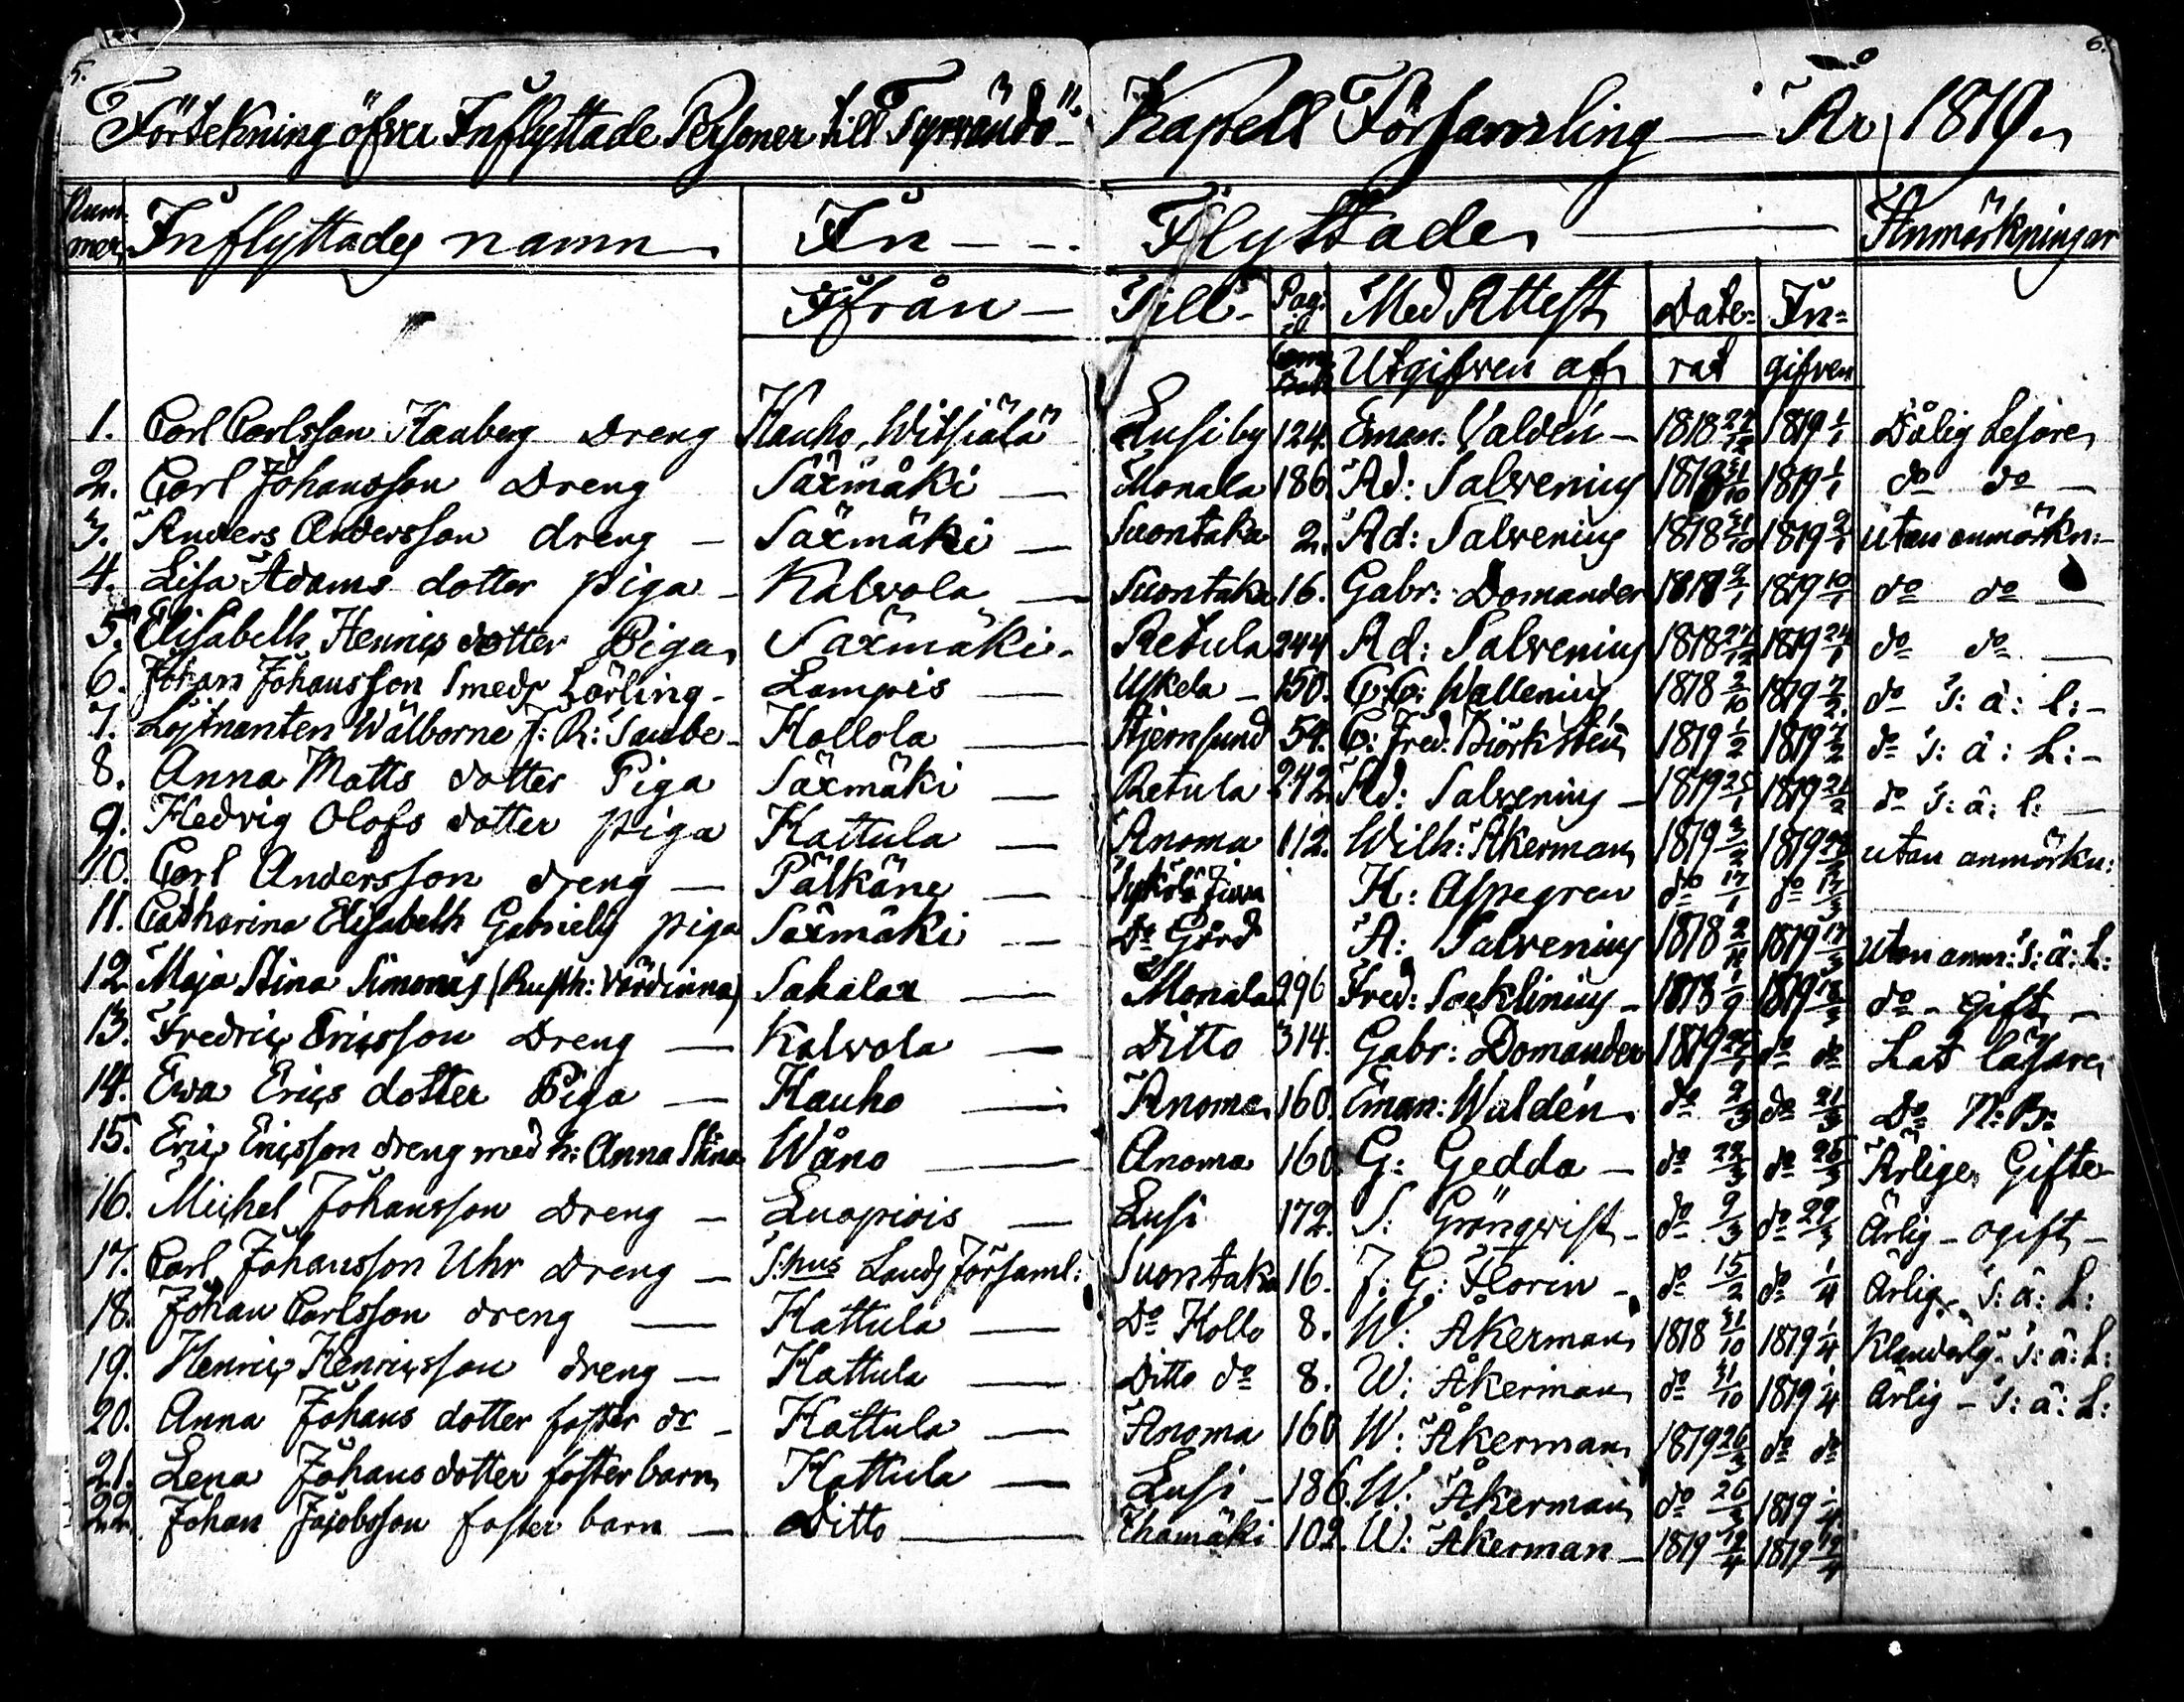 5. 6.
Förtekning öfver Inflyttade Personer till Tyrvändö Kapell Församling — År 1819.
Num- Inflyttades namn In - - - Flyttade — Anmärkningar
mer
Ifrån — Till - Pag. Med Attest Date- In-
Utgifven af rat gifven
1. Carl Carlsson Hauberg Dreng Hauho, Witsiälä Lusi by 124. Eman: Valdén — 1818 27/12 1819 1/1 Dålig Lesare
2. Carl Johansson Dreng Säxmäki — Monala 186. Ad: Salvenius 1818 31/10 1819 1/1 do do —
3. Anders Andersson dreng — Säxmäki — Suontaka 2. Ad: Salvenius 1818 31/10 1819 2/1 utan anmärkn: —
4. Lisa Adams dotter piga — Kalvola — Suontaka 16. Gabr: Domander 1819 9/1 1819 10/1 do do —
5. Elisabeth Henrics dotter Piga Säxmäki - Retula 244 Ad: Salvenius 1818 27/12 1819 24/1 do do —
6. Johan Johansson Smeds Lärling - Lampis — Uskela — 150. Wallenius 1818 2/10 1819 7/2 do S: ä: l: —
7. Löjtnanten Wälborne J: R: Taube - Hollola — Stjernsund 54. C: Fred: Björkstén 1819 1/2 1819 7/2 do S: ä: L: —
8. Anna Matts dotter Piga Säxmäki — Retula 242. Ad: Salvenius — 1819 25/1 1819 21/2 do S: ä: l: —
9. Hedvig Olofs dotter piga Hattula — Anoma 112. Wilh: Åkerman 1819 3/2 1819 utan anmärkn:
10. Carl Andersson dreng — Pälkäne — H: Aspegren do 17/1 do 17/3
11. Catharina Elisabeth Gabriels piga Säxmäki — Do Gård A: Salvenius 1818 2/11 1819 17/3 utan anm: S: ä: L:
12. Maja Stina Simons (Rusth: Värdinna) Sahalax — Monala 296 Fred: Socklinius — 1818 1/9 1819 18/3 do - Gift —
13. Fredric Ericsson Dreng — Kalvola — Ditto 314. Gabr: Domander 1819 do do Lat läsare
14. Ewa Erics dotter Piga — Hauho — Anoma 160. Eman: Waldén do 2/3 do 21/3 Do N: B:
15. Eric Ericsson dreng med h: Anna Stina Wåno — Anoma 160. G: Gedda — do 22/3 do 26/3 Ärlige, Gifte
16. Michel Johansson Dreng — Luopiois — Lusi 172. S: Grönqvist — do 9/3 do 29/3 Ärlig — ogift —
17. Carl Johansson Uhr Dreng — S:hus Lands Församl: Suontaka 16. J: G: Florin — do 15/2 do 1/4 Ärlig, S: ä: L:
18. Johan Carlsson dreng — Hattula — Do Hollo 8. W: Åkerman 1818 31/10 1819 1/4 Klanderlig. S: ä: L:
19. Henric Henricsson dreng — Hattula — Ditto do 8. W: Åkerman do 31/10 1819 1/4 Ärlig — S: ä: L:
20. Anna Johans dotter foster do — Hattula — Anoma 160 W: Åkerman 1819 26/3 do do
21. Lena Johans dotter foster barn Hattula — Lusi — 186. W: Åkerman do 26/3 1819 1/4
22. Johan Jacobsson foster barn — Ditto — 102. W: Åkerman — 1819 12/4 1819 12/4